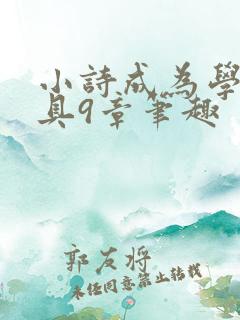 小詩成為學
具9章筆趣
郭友將
未經同意禁止轉載